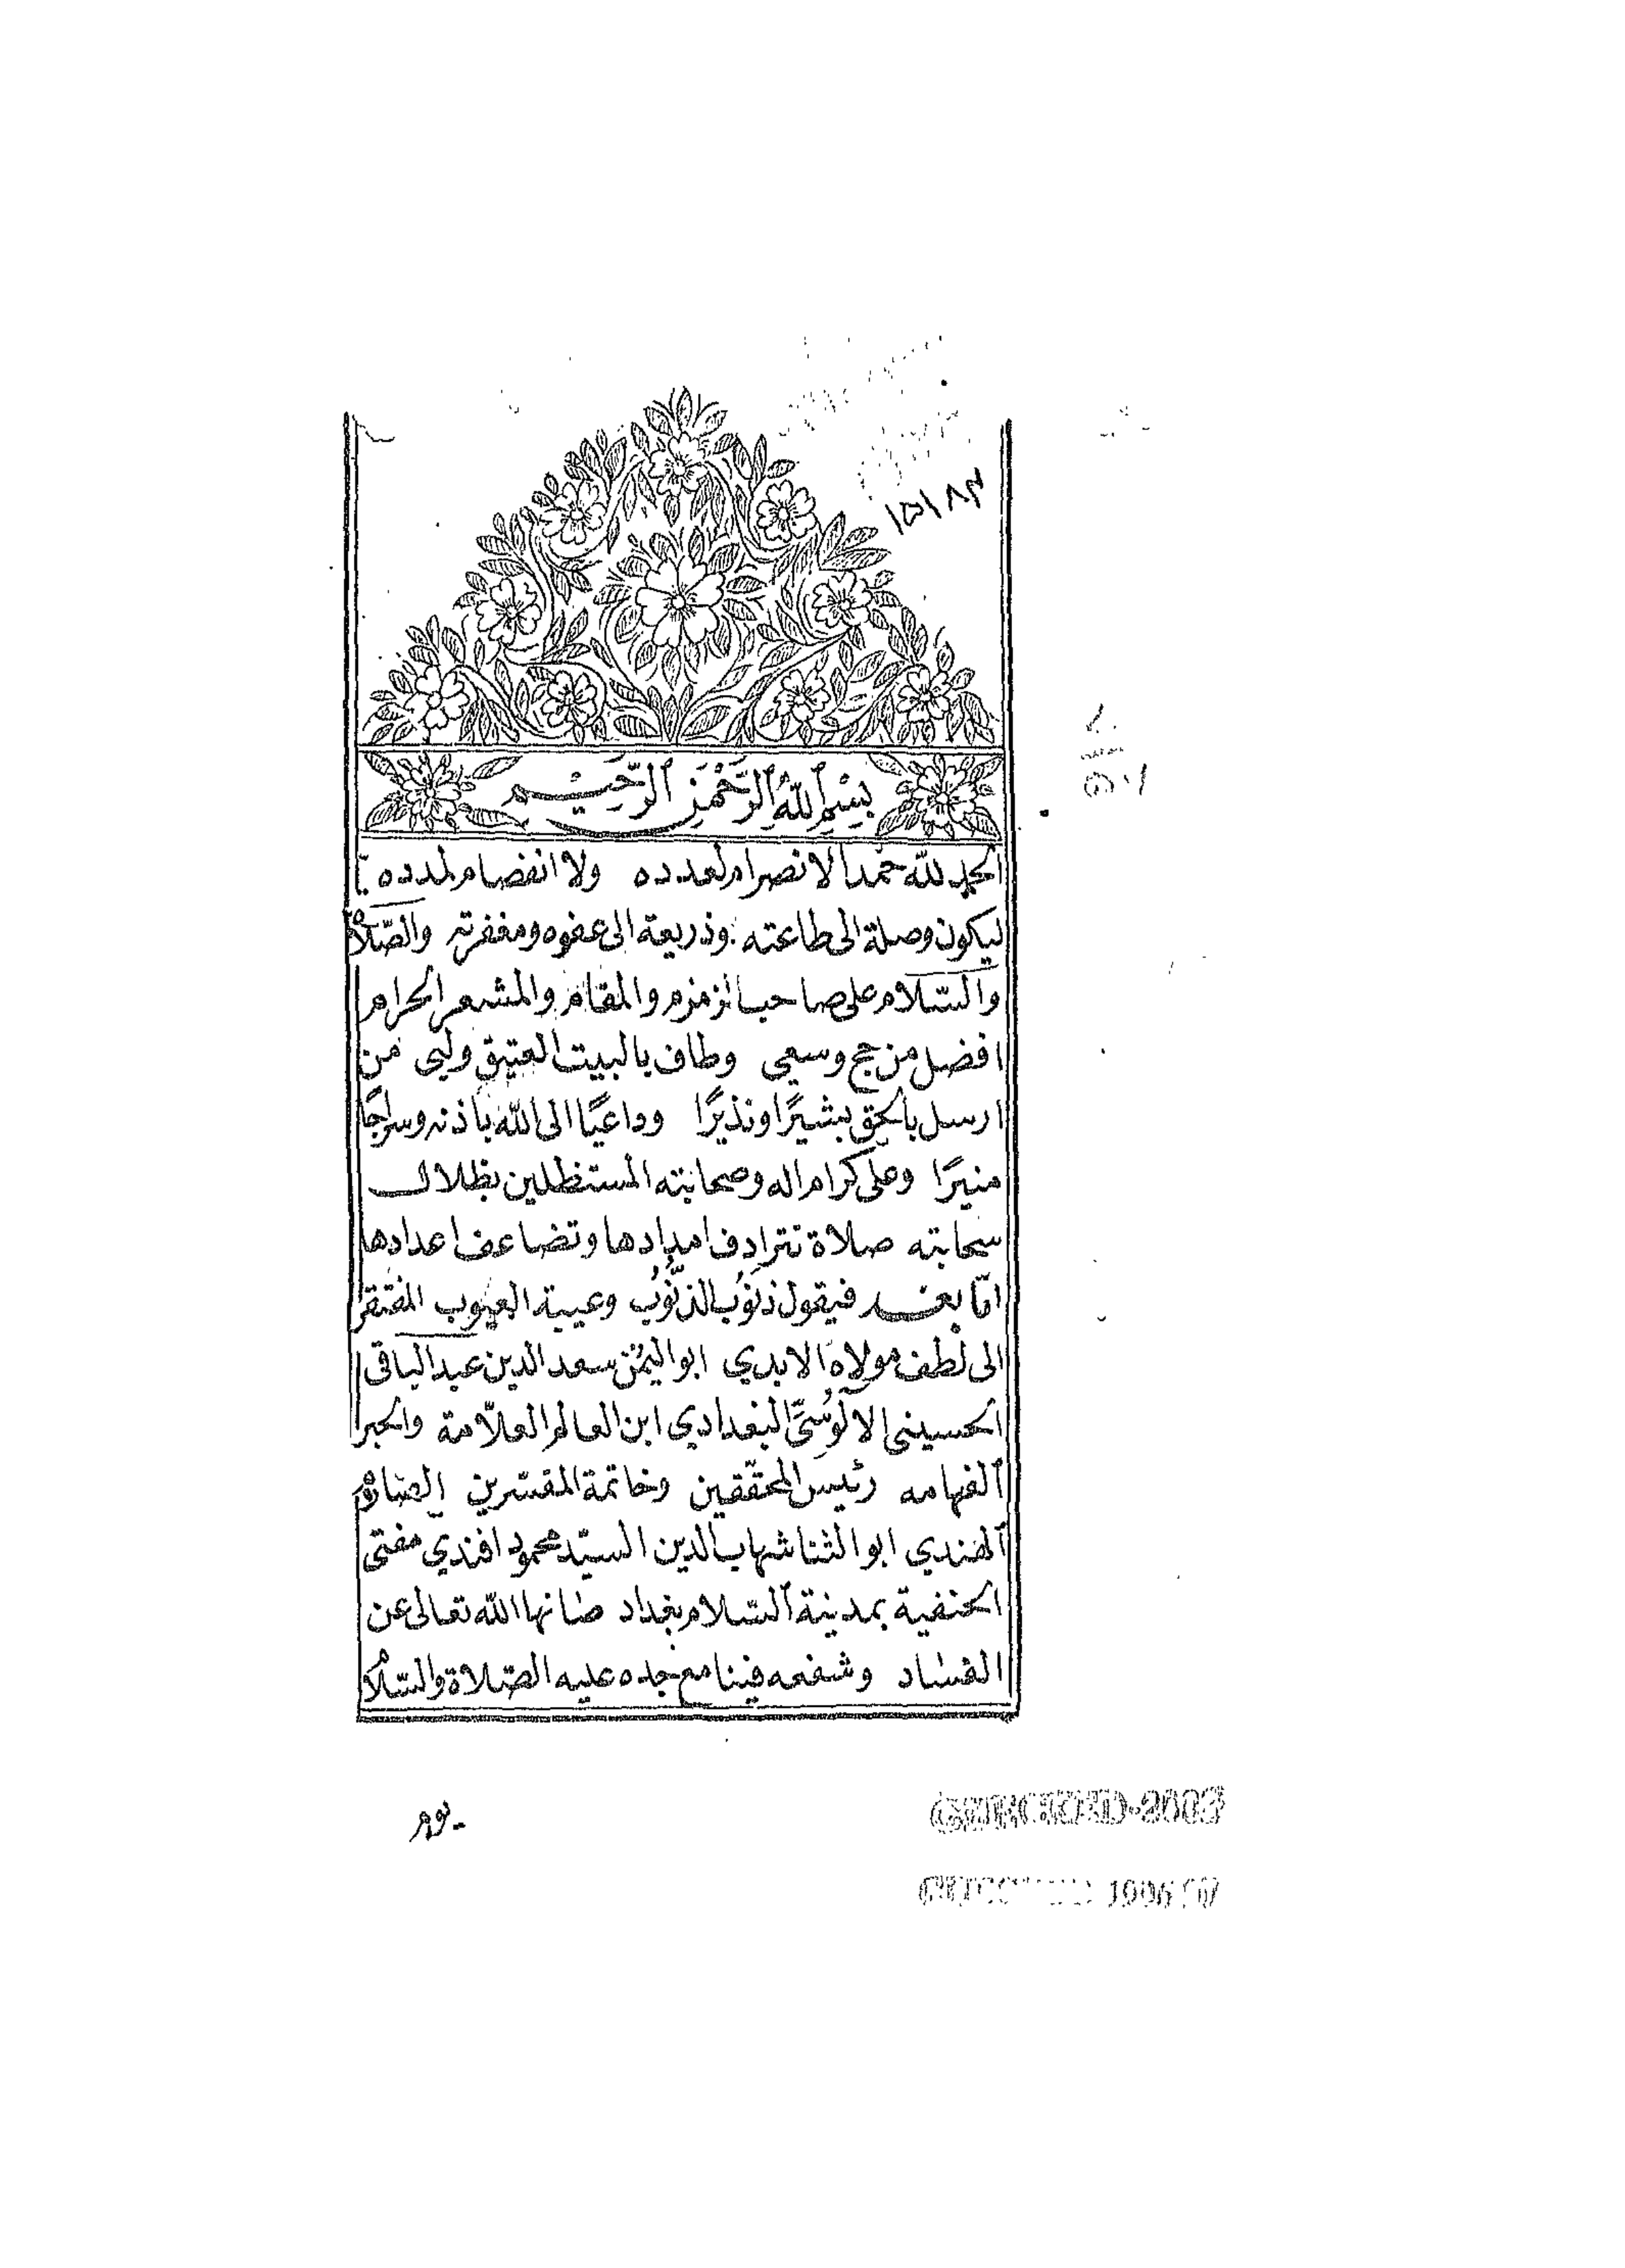 ١٥١٨٣
بِسْمِ ٱللهِ ٱلرَّحْمٰنِ ٱلرَّحِيْمِ
الحمد لله حمدا لا انصرام لعدده ولا انفصام لمدده
ليكون وصلة الى طاعته وذريعة الى عفوه ومغفرته والصّلاة
والسّلام على صاحب زمزم والمقام والمشعر الحرام
افضل من حج وسعى وطاف بالبيت العتيق ولبى من
ارسل بالحق بشيرًا ونذيرًا وداعيًا الى الله باذنه وسراجًا
منيرًا وعلى كرام اله وصحابته المستظلين بظلال
سحابته صلاة تترادف امدادها وتضاعف اعدادها
امّا بعد فيقول ذنوب الذنوب وعيبة العيوب المفتقر
الى لطف مولاه الابدي ابو اليمن سعد الدين عبد الباقى
الحسينى الالوسيّ البغدادي ابن العالم العلاّمة والحبر
الفهامه رئيس المحقّقين وخاتمة المفسّرين الصارم
الهندي ابو الثنا شهاب الدين السيّد محمود افندي مفتى
الحنفية بمدينة السّلام بغداد صانها الله تعالى عن
الفساد وشفعه فينا مع جده عليه الصّلاة والسّلا
2003